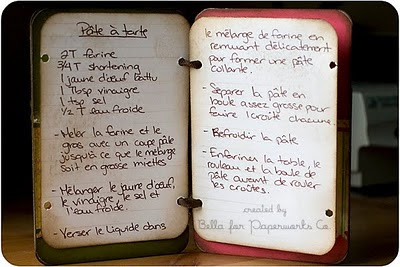 Pâte à tarte
2T farine
3/4 T shortening
1 jaune d'oeuf battu
1 Tbsp vinaigre
1 tsp sel
1/2 T eau froide
- Mêler la farine et le
gras avec un coupe pâte
jusqu'à ce que le mélange
soit en grosse miettes
- Mélanger le jaune d'oeuf,
le vinaigre, le sel et
l'eau froide.
- Verser le liquide dans
le mélange de farine en
remuant délicatement
pour former une pâte
collante.
- Séparer la pâte en
boule assez grosse pour
faire 1 croûte chacune.
- Refroidir la pâte
- Enfariner la table, le
rouleau et la boule de
pâte avant de rouler
les croûtes.
created by
Bella for Paperworks Co.